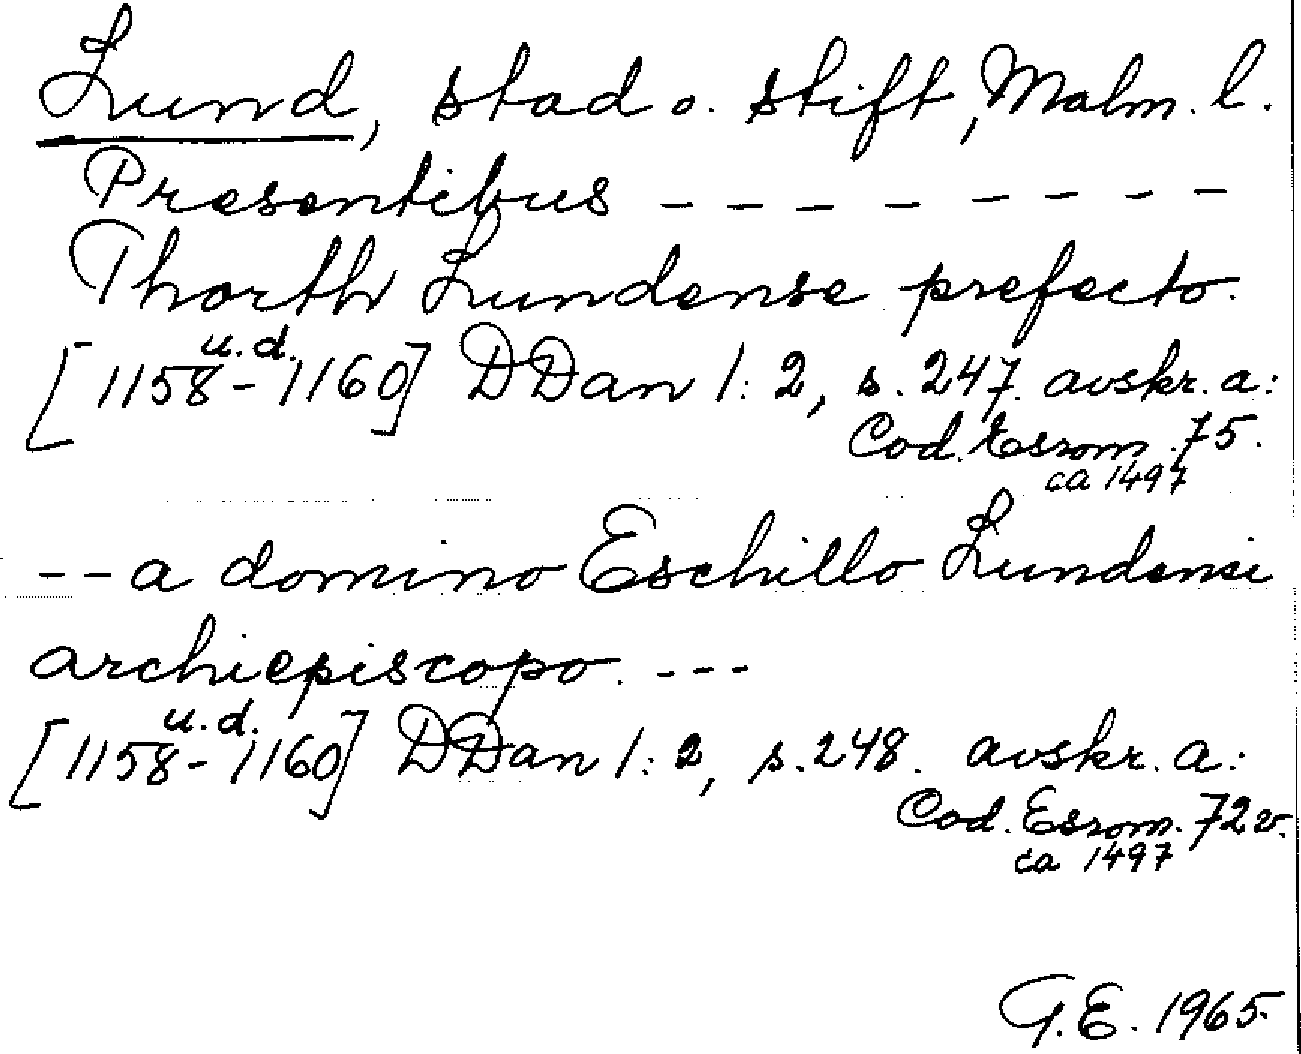 Lund, stad o. stift, Malm. l.
Presentibus - - - - - - - -
Thorth Lundense prefecto.
u. d.
[1158-1160] DDan 1: 2, s. 247. avskr. a:
Cod. Esrom. 75.
ca 1497
-- a domino Eschillo Lundensi
archiepiscopo. ---
u. d.
[1158-1160] DDan 1: 2, s. 248. avskr. a:
Cod. Esrom. 72 v.
ca 1497
G. E. 1965.